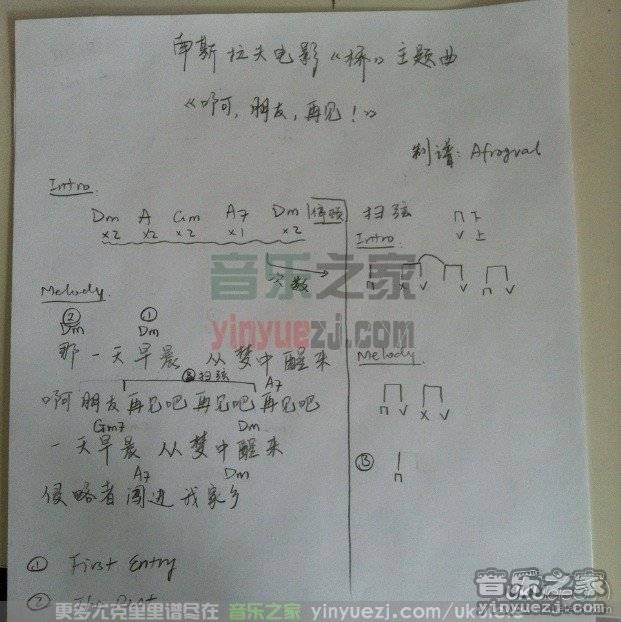 南斯拉夫电影《桥》主题曲
《啊,朋友,再见!》
制谱: Afrogval
Intro
Dm A Gm A7 Dm 停顿
x2 x2 x2 x1 x2
次数
Melody
② ①
Dm Dm
那一天早晨 从梦中醒来
③扫弦 A7
啊朋友再见吧再见吧再见吧
Gm7 Dm
一天早晨 从梦中醒来
A7 Dm
侵略者闯进我家乡
① First Entry
②
扫弦 n 下
Intro v 上
n v n v n v
Melody
n v x v
③
n
音乐之家
yinyuezj.com
更多尤克里里谱尽在 音乐之家 yinyuezj.com/ukulele
音乐之家
yinyuezj.com